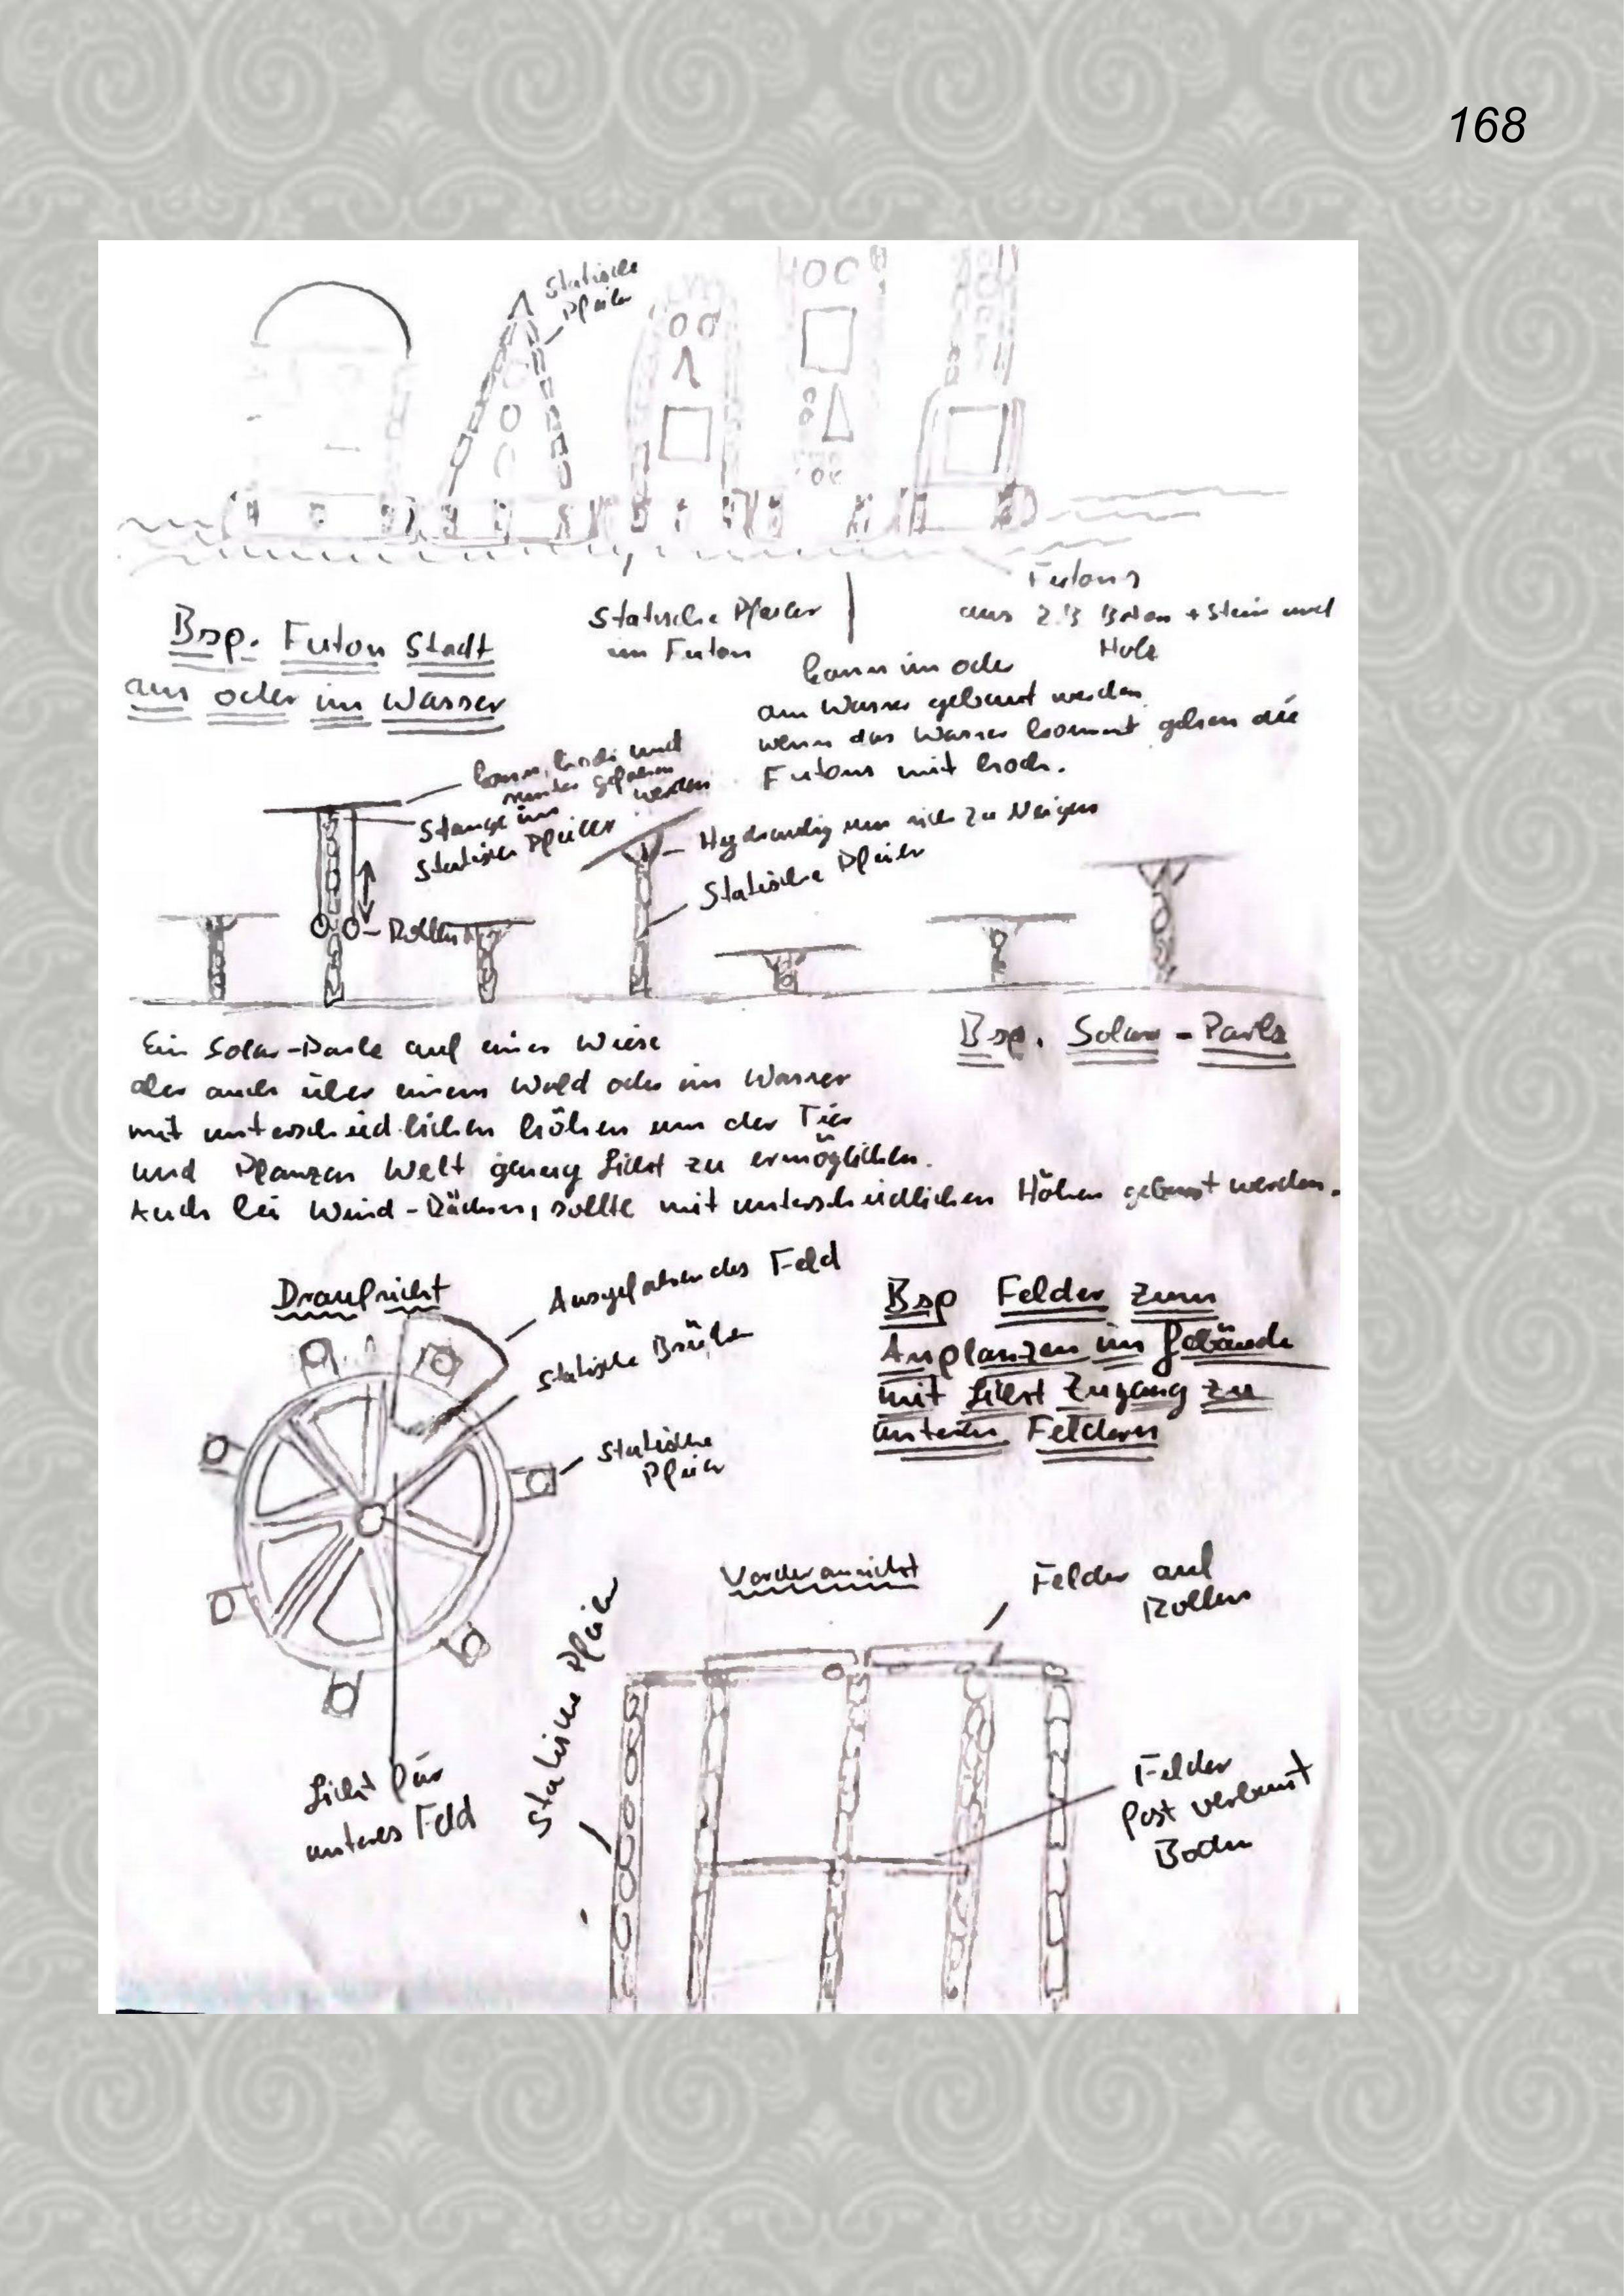 168
Statische
Pfeiler
Futons
aus z.B Beton + Stein und
Holz
Statische Pfeiler
im Futon
Bsp. Futon Stadt
am oder im Wasser
kann im oder
am Wasser gebaut werden
wenn das Wasser kommt gehen die
Futons mit hoch.
kann hoch und
runter gefahren
werden
Stange im
Statischen Pfeiler
Hydraulig um sich zu Neigen
Statische Pfeiler
Rollen
Bsp. Solar-Park
Ein Solar-Park auf einer Wiese
aber auch über einem Wald oder im Wasser
mit unterschiedlichen höhen um der Tier
und Pflanzen Welt genug Licht zu ermöglichen.
Auch bei Wind-Rädern, sollte mit unterschiedlichen Höhen gebaut werden.
Draufsicht
Ausgefahrendes Feld
Statische Brücken
Statische
Pfeiler
Bsp Felder zum
Anplanzen im Gebäude
mit Licht Zugang zu
unteren Feldern
Vorderansicht
Felder auf
Rollen
Statische Pfeiler
Licht für
unteres Feld
Felder
fest verbaut
Boden